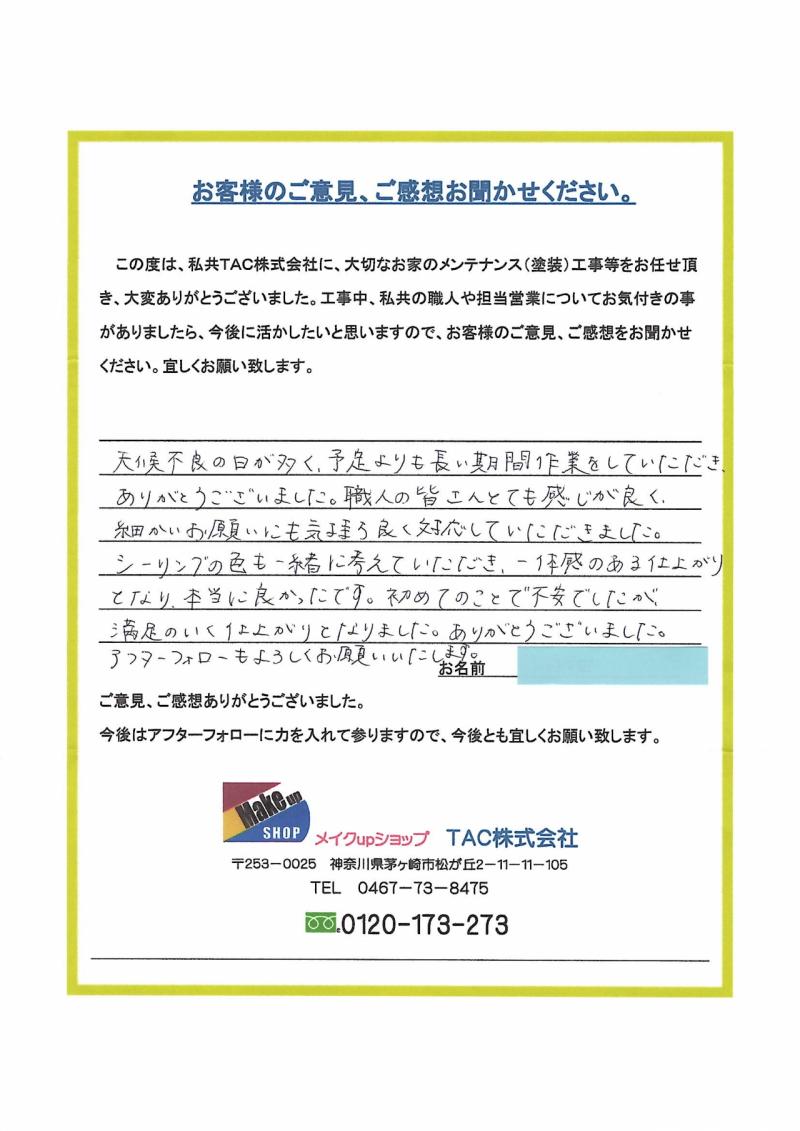 お客様のご意見、ご感想お聞かせください。
この度は、私共TAC株式会社に、大切なお家のメンテナンス(塗装)工事等をお任せ頂
き、大変ありがとうございました。工事中、私共の職人や担当営業についてお気付きの事
がありましたら、今後に活かしたいと思いますので、お客様のご意見、ご感想をお聞かせ
ください。宜しくお願い致します。
天候不良の日が多く、予定よりも長い期間作業をしていただき、
ありがとうございました。職人の皆さんとても感じが良く、
細かいお願いにも気もち良く対応していただきました。
シーリングの色も一緒に考えていただき、一体感のある仕上がり
となり、本当に良かったです。初めてのことで不安でしたが、
満足のいく仕上がりとなりました。ありがとうございました。
アフターフォローもよろしくお願いいたします。
お名前
ご意見、ご感想ありがとうございました。
今後はアフターフォローに力を入れて参りますので、今後とも宜しくお願い致します。
Make up
SHOP
メイクupショップ TAC株式会社
〒253-0025 神奈川県茅ヶ崎市松が丘2-11-11-105
TEL 0467-73-8475
0120-173-273